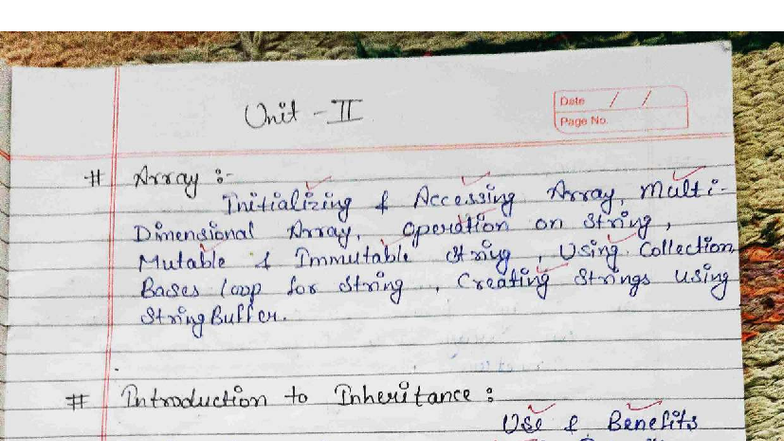 Unit - II
Date / /
Page No.
# Array :-
Initializing & Accessing Array, Multi-
Dimensional Array, Operation on String,
Mutable & Immutable String, Using Collection
Bases loop for String, Creating Strings using
StringBuffer.
# Introduction to Inheritance :
Use & Benefits